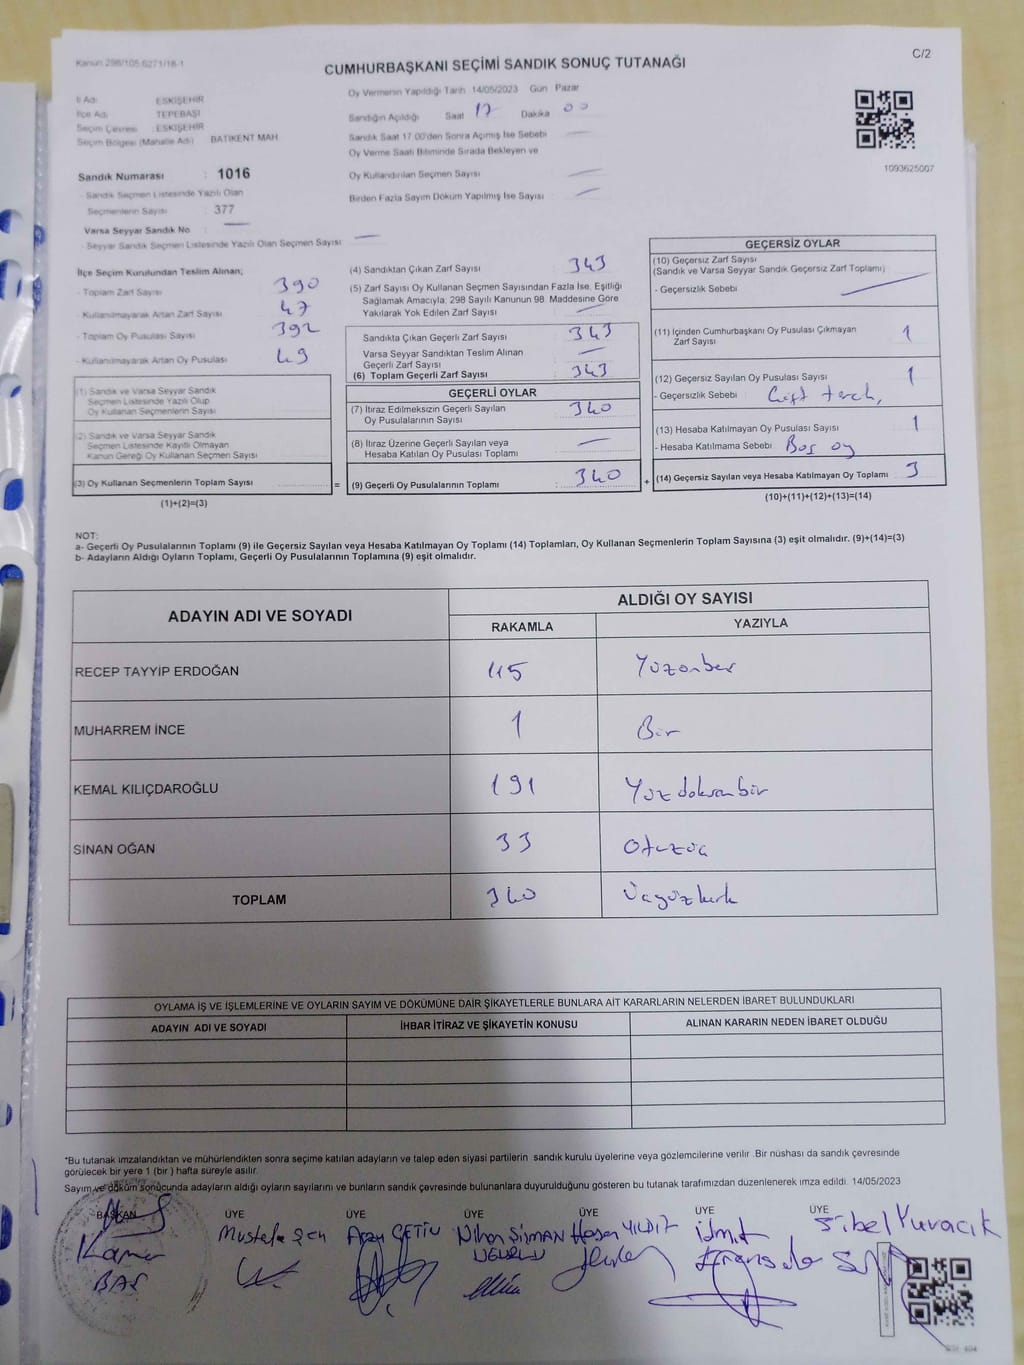 Kanun 298/105.6271/18-1
C/2
CUMHURBAŞKANI SEÇİMİ SANDIK SONUÇ TUTANAĞI
İl Adı ESKİŞEHİR
İlçe Adı TEPEBAŞI
Seçim Çevresi : ESKİŞEHİR
Seçim Bölgesi (Mahalle Adı) BATIKENT MAH
Oy Vermenin Yapıldığı Tarih 14/05/2023 Gün Pazar
Sandığın Açıldığı Saat 17 Dakika 00
Sandık Saat 17.00'den Sonra Açılmış İse Sebebi
Oy Verme Saati Bitiminde Sırada Bekleyen ve
Oy Kullandırılan Seçmen Sayısı
Birden Fazla Sayım Döküm Yapılmış İse Sayısı
1093625007
Sandık Numarası : 1016
- Sandık Seçmen Listesinde Yazılı Olan
Seçmenlerin Sayısı : 377
Varsa Seyyar Sandık No
- Seyyar Sandık Seçmen Listesinde Yazılı Olan Seçmen Sayısı
İlçe Seçim Kurulundan Teslim Alınan;
- Toplam Zarf Sayısı 390
- Kullanılmayarak Artan Zarf Sayısı 47
- Toplam Oy Pusulası Sayısı 392
- Kullanılmayarak Artan Oy Pusulası 49
(1) Sandık ve Varsa Seyyar Sandık
Seçmen Listesinde Yazılı Olup
Oy Kullanan Seçmenlerin Sayısı
(2) Sandık ve Varsa Seyyar Sandık
Seçmen Listesinde Kayıtlı Olmayan
Kanun Gereği Oy Kullanan Seçmen Sayısı
(3) Oy Kullanan Seçmenlerin Toplam Sayısı
(1)+(2)=(3)
(4) Sandıktan Çıkan Zarf Sayısı 343
(5) Zarf Sayısı Oy Kullanan Seçmen Sayısından Fazla İse, Eşitliği
Sağlamak Amacıyla, 298 Sayılı Kanunun 98. Maddesine Göre
Yakılarak Yok Edilen Zarf Sayısı
Sandıkta Çıkan Geçerli Zarf Sayısı 343
Varsa Seyyar Sandıktan Teslim Alınan
Geçerli Zarf Sayısı
(6) Toplam Geçerli Zarf Sayısı 343
GEÇERLİ OYLAR
(7) İtiraz Edilmeksizin Geçerli Sayılan
Oy Pusulalarının Sayısı 340
(8) İtiraz Üzerine Geçerli Sayılan veya
Hesaba Katılan Oy Pusulası Toplamı
=
(9) Geçerli Oy Pusulalarının Toplamı : 340
+
GEÇERSİZ OYLAR
(10) Geçersiz Zarf Sayısı
(Sandık ve Varsa Seyyar Sandık Geçersiz Zarf Toplamı)
- Geçersizlik Sebebi
(11) İçinden Cumhurbaşkanı Oy Pusulası Çıkmayan
Zarf Sayısı 1
(12) Geçersiz Sayılan Oy Pusulası Sayısı 1
- Geçersizlik Sebebi : Çift terch,
(13) Hesaba Katılmayan Oy Pusulası Sayısı 1
- Hesaba Katılmama Sebebi : Boş oy
(14) Geçersiz Sayılan veya Hesaba Katılmayan Oy Toplamı 3
(10)+(11)+(12)+(13)=(14)
NOT:
a- Geçerli Oy Pusulalarının Toplamı (9) ile Geçersiz Sayılan veya Hesaba Katılmayan Oy Toplamı (14) Toplamları, Oy Kullanan Seçmenlerin Toplam Sayısına (3) eşit olmalıdır. (9)+(14)=(3)
b- Adayların Aldığı Oyların Toplamı, Geçerli Oy Pusulalarının Toplamına (9) eşit olmalıdır.
ADAYIN ADI VE SOYADI ALDIĞI OY SAYISI
RAKAMLA YAZIYLA
RECEP TAYYİP ERDOĞAN 115 Yüzonbeş
MUHARREM İNCE 1 Bir
KEMAL KILIÇDAROĞLU 191 Yüzdoksanbir
SİNAN OĞAN 33 Otuzüç
TOPLAM 340 Üçyüzkırk
OYLAMA İŞ VE İŞLEMLERİNE VE OYLARIN SAYIM VE DÖKÜMÜNE DAİR ŞİKAYETLERLE BUNLARA AİT KARARLARIN NELERDEN İBARET BULUNDUKLARI
ADAYIN ADI VE SOYADI İHBAR İTİRAZ VE ŞİKAYETİN KONUSU ALINAN KARARIN NEDEN İBARET OLDUĞU
*Bu tutanak imzalandıktan ve mühürlendikten sonra seçime katılan adayların ve talep eden siyasi partilerin sandık kurulu üyelerine veya gözlemcilerine verilir .Bir nüshası da sandık çevresinde
görülecek bir yere 1 (bir ) hafta süreyle asılır.
Sayım ve döküm sonucunda adayların aldığı oyların sayılarını ve bunların sandık çevresinde bulunanlara duyurulduğunu gösteren bu tutanak tarafımızdan düzenlenerek imza edildi. 14/05/2023
BAŞKAN ÜYE ÜYE ÜYE ÜYE ÜYE ÜYE
Mustafa Şen Arzu ÇETİN Nihan ŞİŞMAN Hasan YILDIZ Sibel Yuvacık
BAŞ UĞURLU